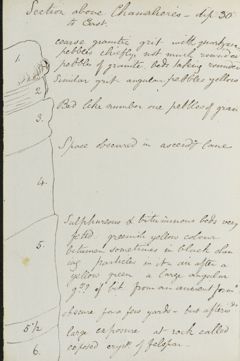 Section above Chamalieres - dip 30°
to East.
coarse granite grit with quartzose
pebbles chiefly, not much rounded
pebbles of granite, beds taking rounded
Similar grit angular pebbles yellow
1.
2.
Bed like number one pebbles of gran
3.
Space obscured in ascendg lane
4.
Sulphureous & bituminous beds very
fetid greenish yellow colour
bitumen sometimes in black
particles in it & in after a
yellow green a large angular
of bit from an ancient
5.
obscure for a few yards - but afterwds
5 1/2
large exposure at rock called
6.
exposed crypt of felspar